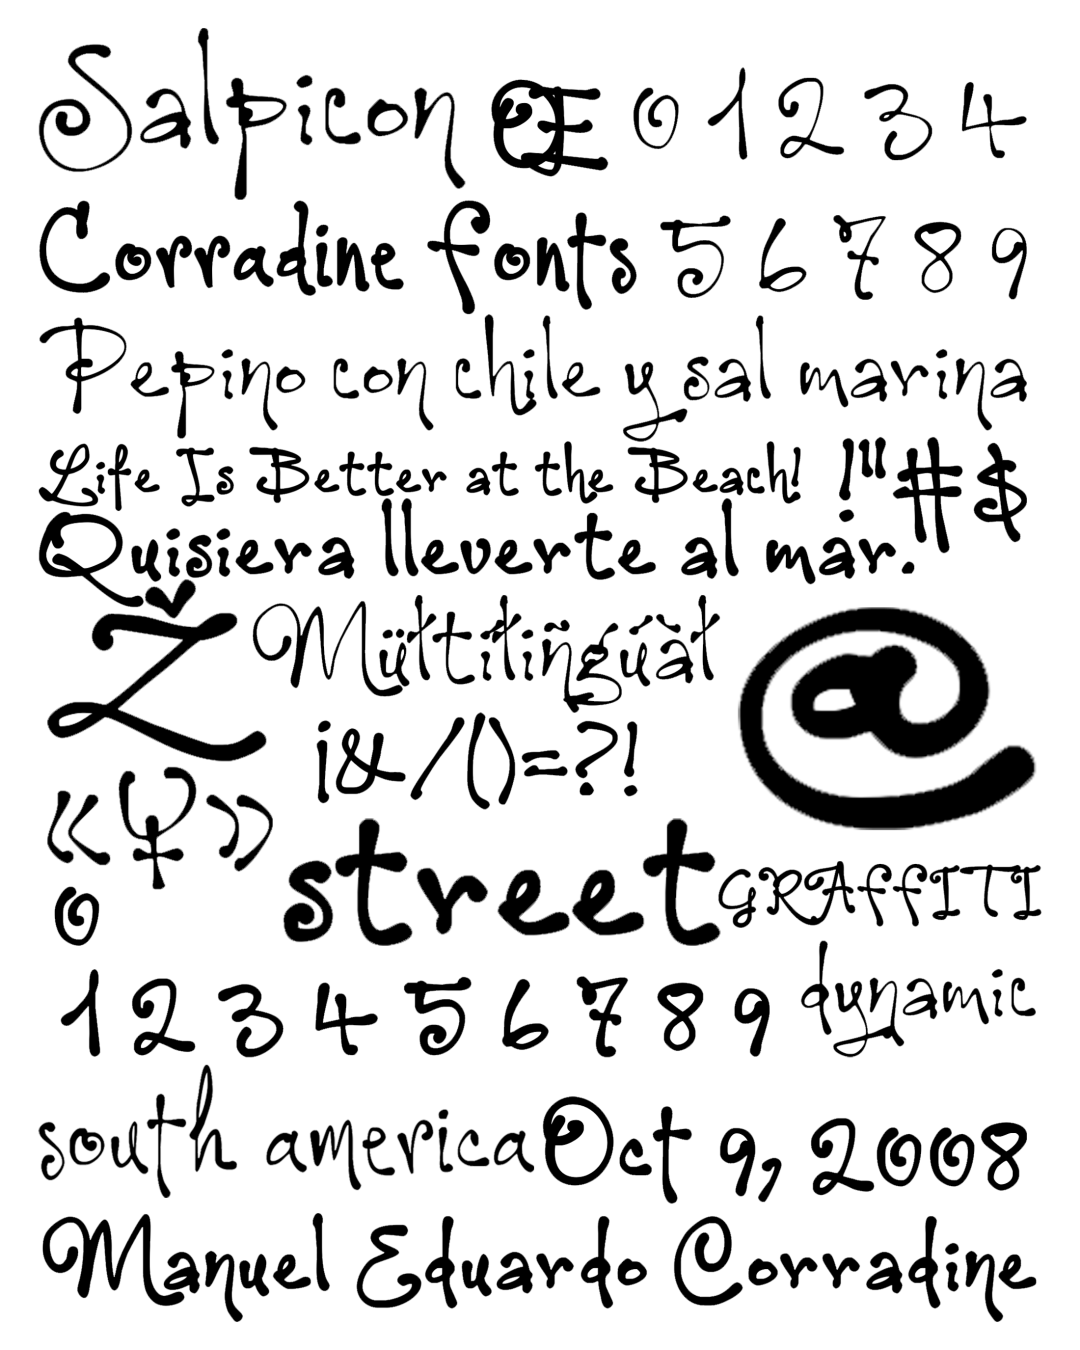 Salpicon Œ 0 1 2 3 4
Corradine fonts 5 6 7 8 9
Pepino con chile y sal marina
Life Is Better at the Beach! !"#$
Quisiera lleverte al mar.
Ž Müłtiłiñğúàł @
i&/()=?!
« »
street GRAffITI
0
1 2 3 4 5 6 7 8 9 dynamic
south america Oct 9, 2008
Manuel Eduardo Corradine